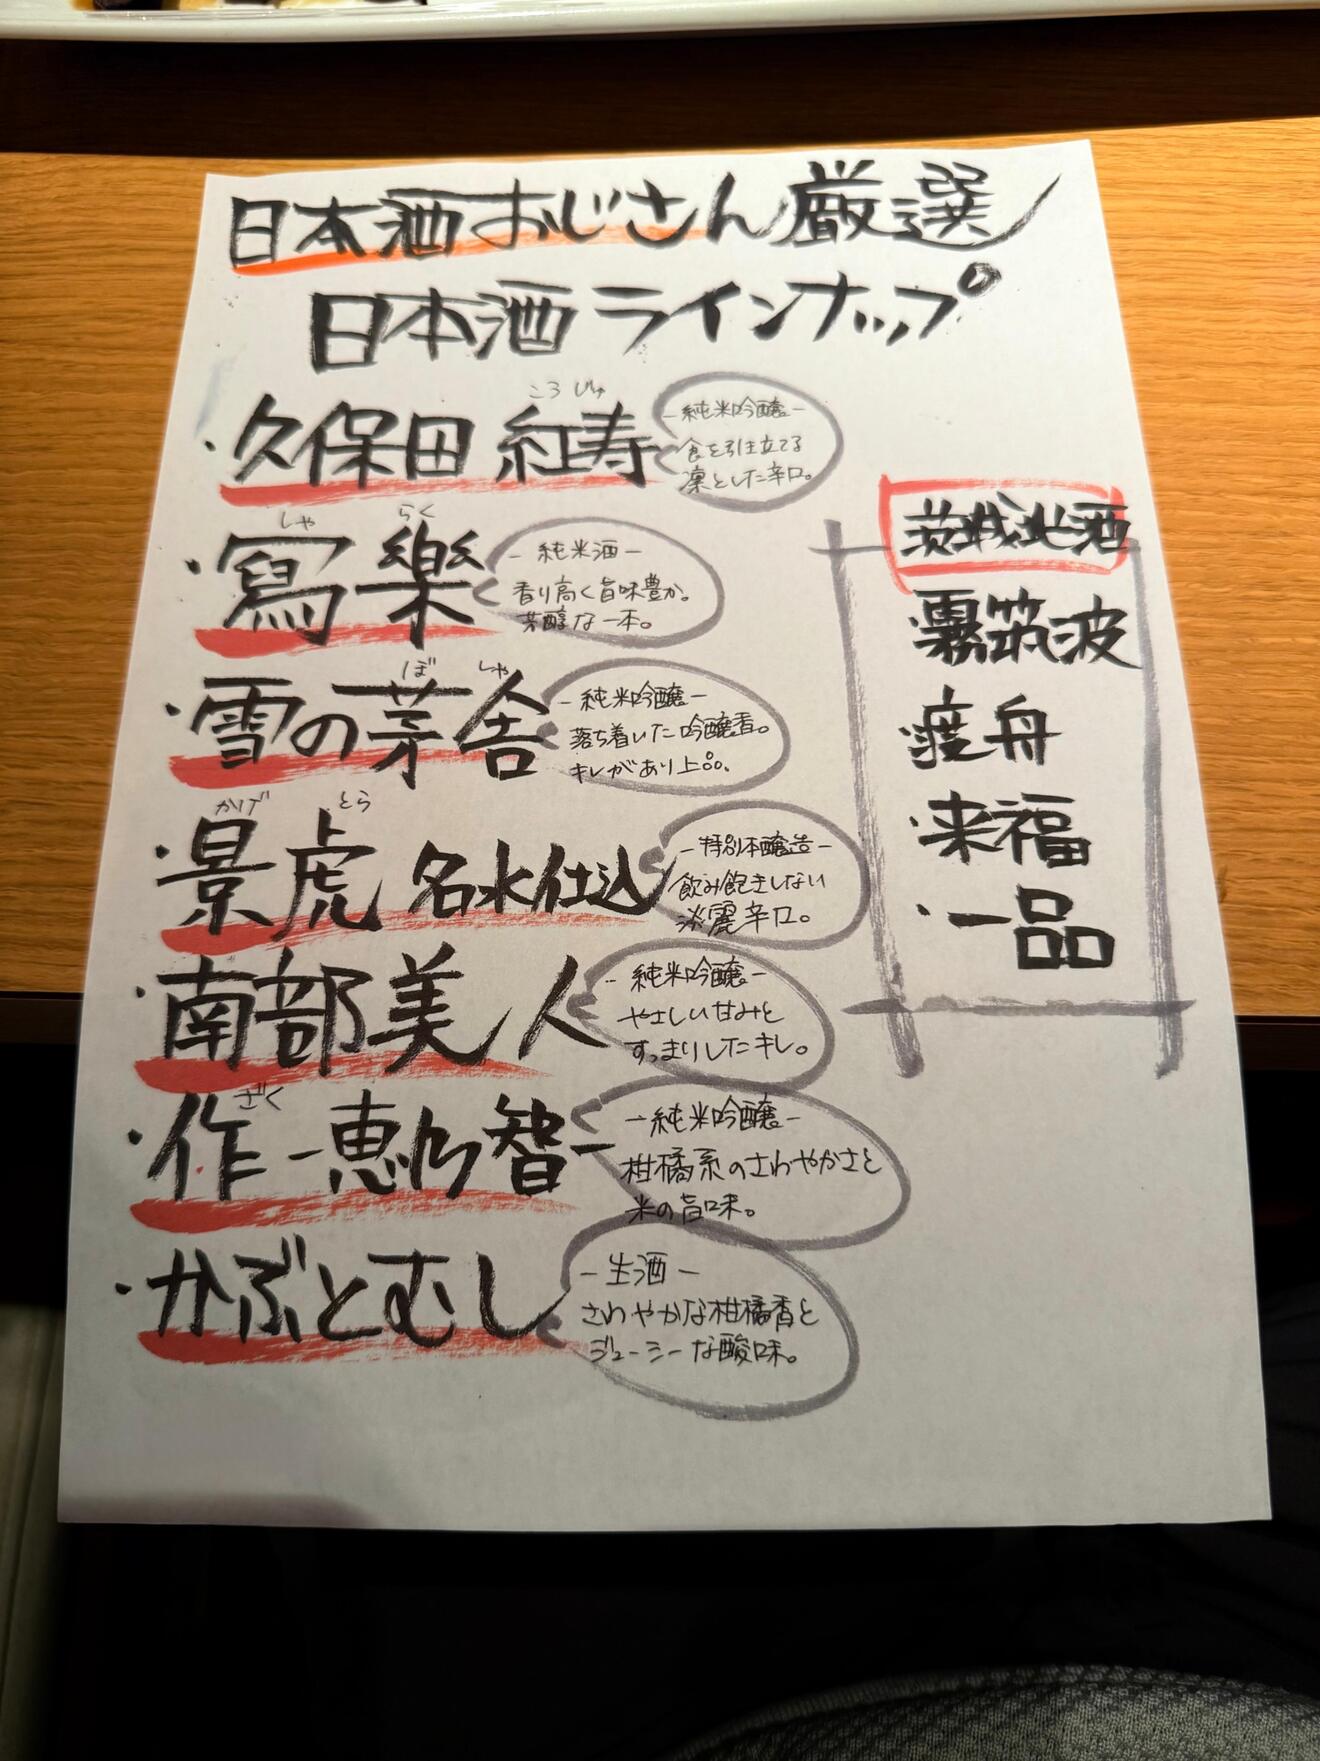 日本酒おじさん厳選
日本酒ラインナップ
ころじゅ
・久保田 紅寿
-純米吟醸-
食を引き立てる
凛とした辛口。
しゃ らく
・寫樂
-純米酒-
香り高く旨味豊か。
芳醇な一本。
ぼ しゃ
・雪の茅舎
-純米吟醸-
落ち着いた吟醸香。
キレがあり上品。
かげ とら
・景虎 名水仕込
-特別本醸造-
飲み飽きしない
淡麗辛口。
・南部美人
-純米吟醸-
やさしい甘みと
すっきりしたキレ。
ざく
・作-恵乃智-
-純米吟醸-
柑橘系のさわやかさと
米の旨味。
・かぶとむし
-生酒-
さわやかな柑橘香と
ジューシーな酸味。
茨城地酒
・霧筑波
・渡舟
・来福
・一品